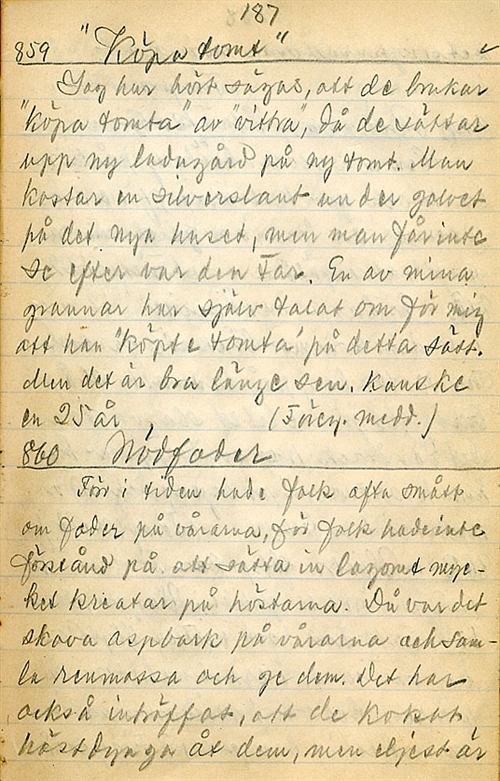 187
859 "Köpa tomt"
Jag har hört sägas, att de brukar
"köpa tomta" av "vittra", då de sättar
upp ny ladugård på ny tomt. Man
kastar en silverslant under golvet
på det nya huset, men man får inte
se efter var den far. En av mina
grannar har själv talat om för mig
att han "köpte tomta" på detta sätt.
Men det är bra länge sen. Kanske
en 25 år. (Föreg. medd.)
860 Nödfoder
Förr i tiden hade folk ofta smått
om foder på vårarna, för folk hade inte
förstånd på att sätta in lagomt myc-
ket kreatur på höstarna. Då var det
skava aspbark på vårarna och sam-
la renmossa och ge dem. Det har
också inträffat, att de kokat
hästdynga åt dem, men eljest är